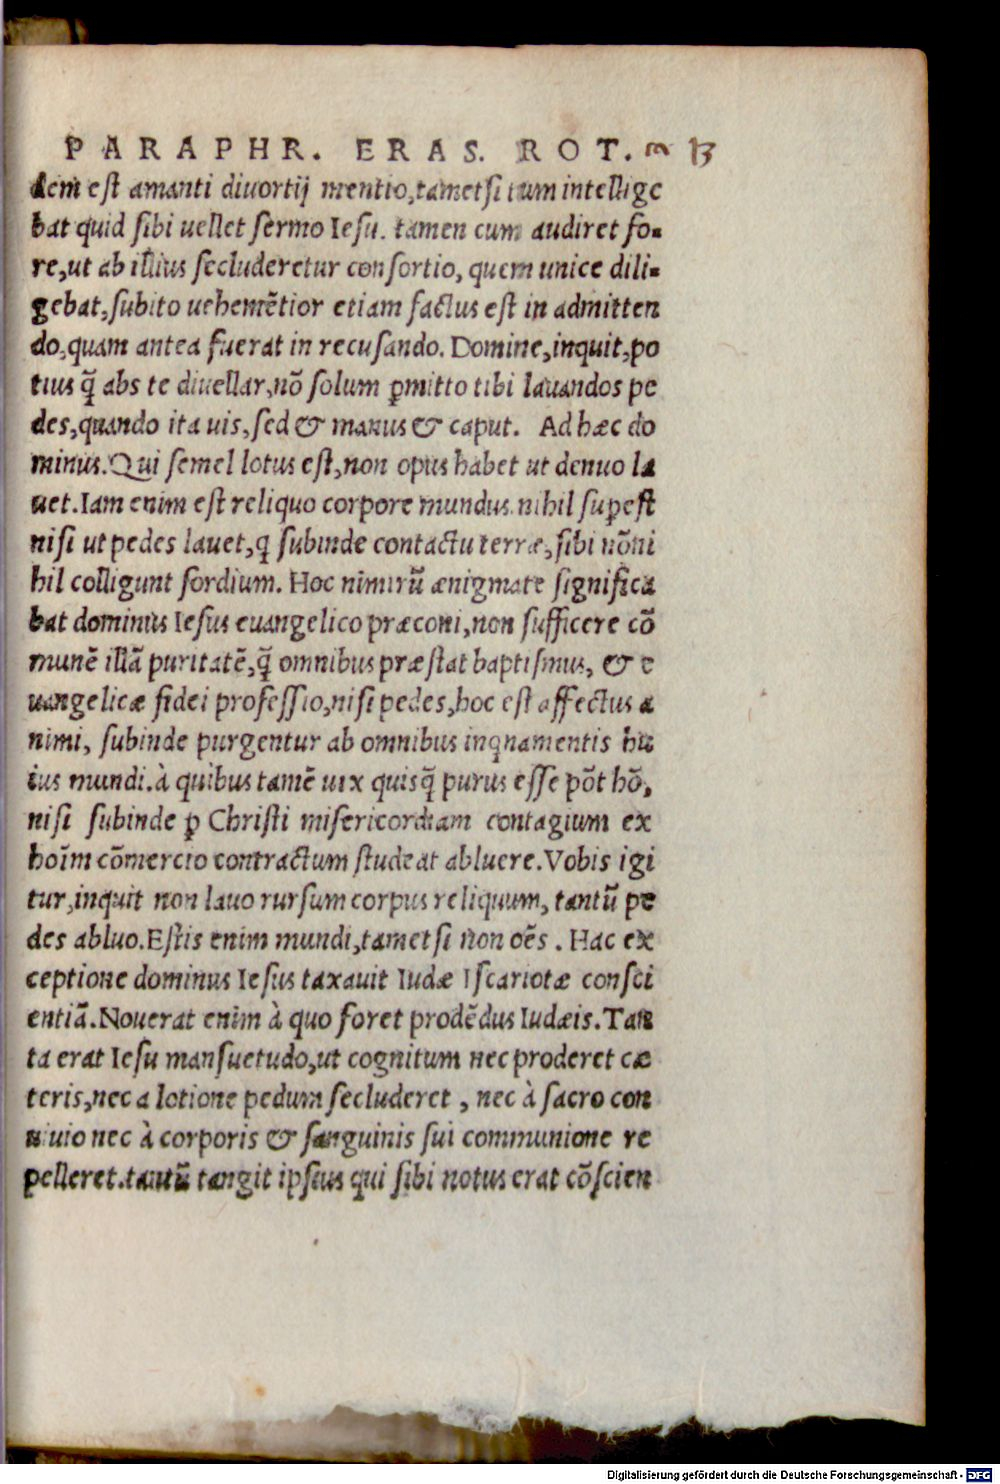 PARAPHR. ERAS. ROT. 13
dem est amanti diuortij mentio, tametsi tum intellige
bat quid sibi uellet sermo Iesu. tamen cum audiret fo-
re, ut ab illius secluderetur consortio, quem unice dili-
gebat, subito uehemētior etiam factus est in admitten
do, quam antea fuerat in recusando. Domine, inquit, po
tius q̄ abs te diuellar, nō solum ꝑmitto tibi lauandos pe
des, quando ita uis, sed & manus & caput. Ad hæc do
minus. Qui semel lotus est, non opus habet ut denuo la
uet. Iam enim est reliquo corpore mundus. nihil suꝑest
nisi ut pedes lauet, q subinde contactu terræ, sibi nōni
hil colligunt sordium. Hoc nimirū ænigmate significa
bat dominus Iesus euangelico præconi, non sufficere cō
munē illā puritatē, q̄ omnibus præstat baptismus, & e
uangelicæ fidei professio, nisi pedes, hoc est affectus a
nimi, subinde purgentur ab omnibus inqnamentis hu
ius mundi. à quibus tamē uix quisq̄ purus esse pōt hō,
nisi subinde ꝑ Christi misericordiam contagium ex
hoīm cōmercio contractum studeat abluere. Vobis igi
tur, inquit non lauo rursum corpus reliquum, tantū pe
des abluo. Estis enim mundi, tametsi non oēs. Hac ex
ceptione dominus Iesus taxauit Iudæ Iscariotæ consci
entiā. Nouerat enim à quo foret prodēdus Iudæis. Tan
ta erat Iesu mansuetudo, ut cognitum nec proderet cæ
teris, nec a lotione pedum secluderet, nec à sacro con
uiuio nec à corporis & sanguinis sui communione re
pelleret. tantū tangit ipsius qui sibi notus erat cōscien
Digitalisierung gefördert durch die Deutsche Forschungsgemeinschaft - DFG